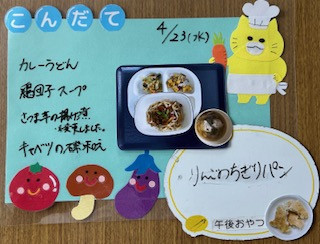 こんだて
4/23(水)
カレーうどん
腸団子スープ
さつま芋の揚げ煮
キャベツの磯和え
りんごのちぎりパン
午後おやつ